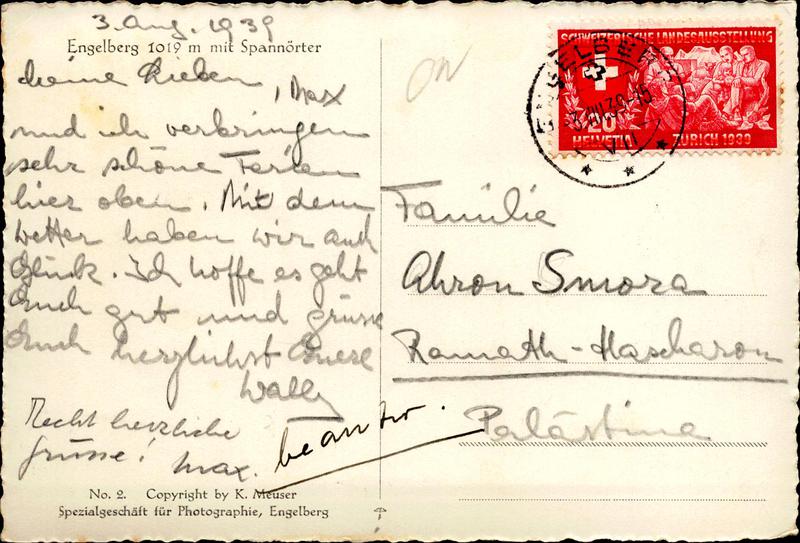 3. Aug. 1939
Engelberg 1019 m mit Spannörter
Meine Lieben, Max
und ich verbringen
sehr schöne Ferien
hier oben. Mit dem
Wetter haben wir auch
Glück. Ich hoffe es geht
Euch gut und grüsse
Euch herzlichst Euere
Wally
Recht herzliche
Grüsse! Max.
beantw.
No. 2. Copyright by K. Meuser
Spezialgeschäft für Photographie, Engelberg
SCHWEIZERISCHE LANDESAUSSTELLUNG
20
HELVETIA ZÜRICH 1939
ENGELBERG
-3.VIII.39-15
Familie
Ahron Smora
Ramath-Hascharon
Palästina